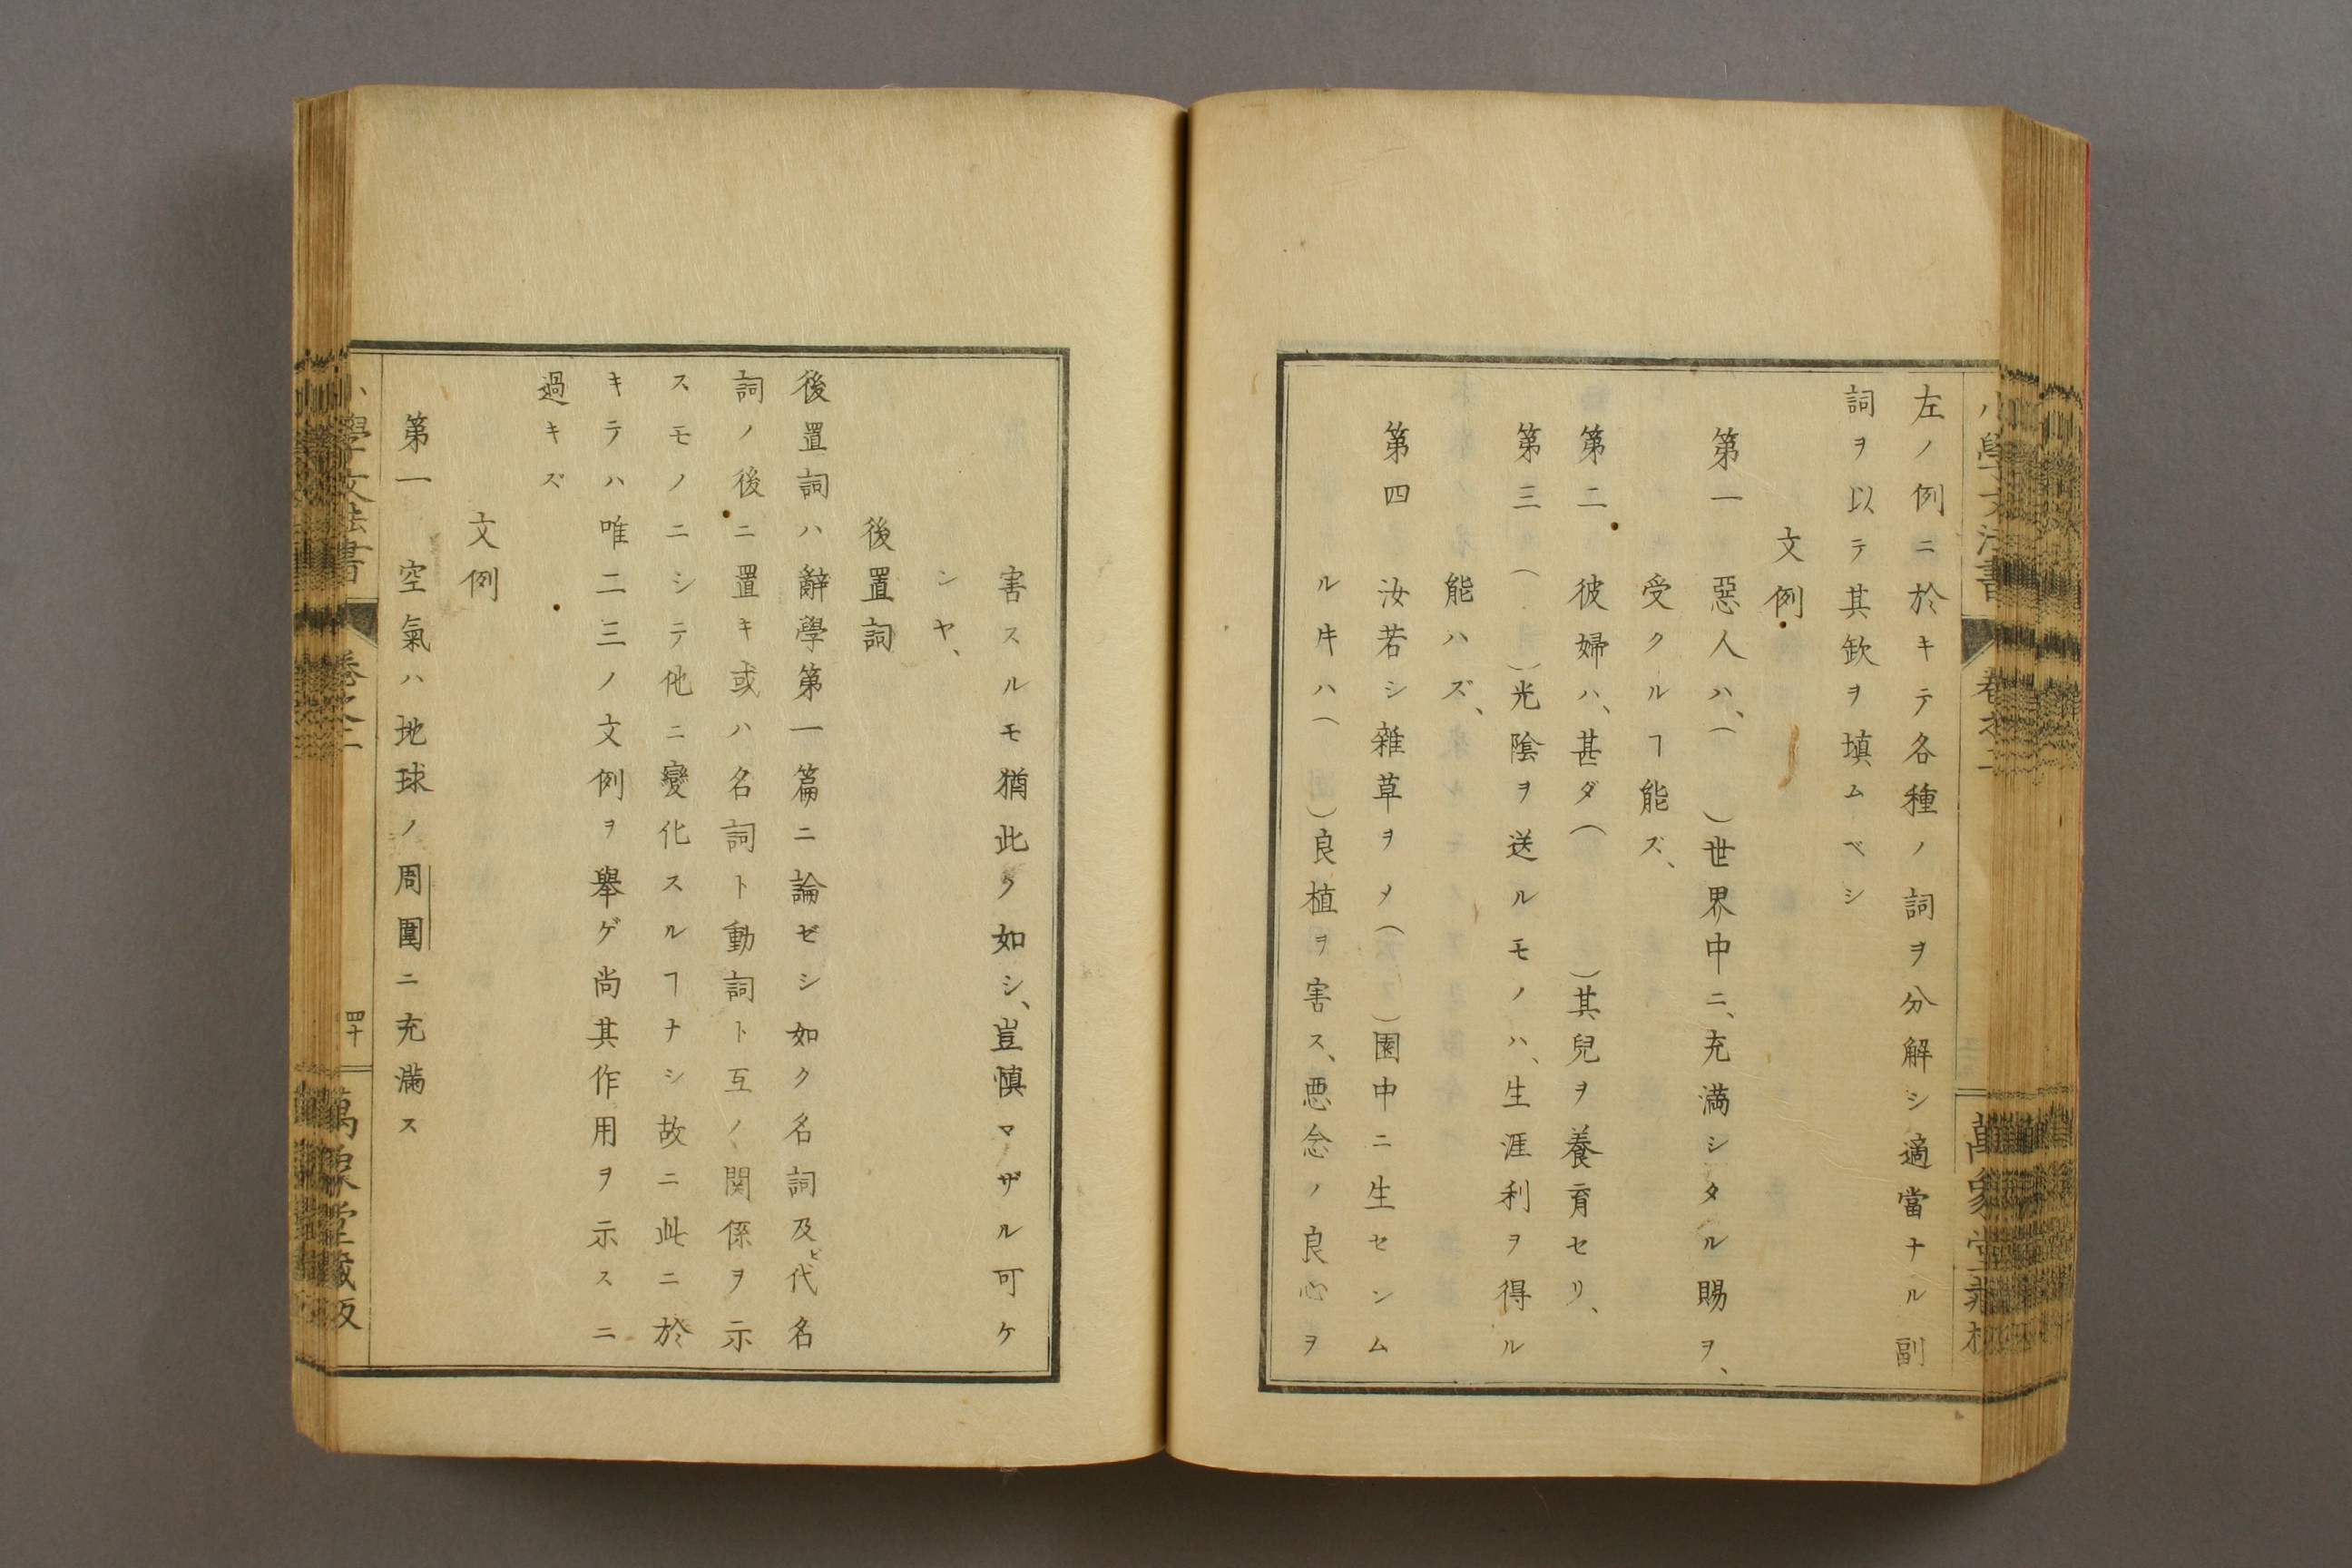 左ノ例ニ於キテ各種ノ詞ヲ分解シ適當ナル副
詞ヲ以テ其欽ヲ塡ムベシ
文例
第一 惡人ハ、（ ）世界中ニ、充満シタル賜ヲ、
受クルヿ能ズ、
第二 彼婦ハ、甚ダ（ ）其兒ヲ養育セリ、
第三 （ ）光陰ヲ送ルモノハ、生涯利ヲ得ル
能ハズ、
第四 汝若シ雜草ヲメ（ ）園中ニ生センム
ル牛ハ（ ）良植ヲ害ス、悪念ノ良心ヲ
害スルモ猶此ク如シ、豈慎マザル可ケ
ンヤ、
後置詞
後置詞ハ辭學第一篇ニ論ゼシ如ク名詞及ビ代名
詞ノ後ニ置キ或ハ名詞ト動詞ト互ノ関係ヲ示
スモノニシテ他ニ變化スルヿナシ故ニ此ニ於
キテハ唯二三ノ文例ヲ舉ゲ尚其作用ヲ示スニ
過キズ
文例
第一 空氣ハ地球ノ周圍ニ充滿ス
小學文法書 卷之二 四十 萬象堂藏版